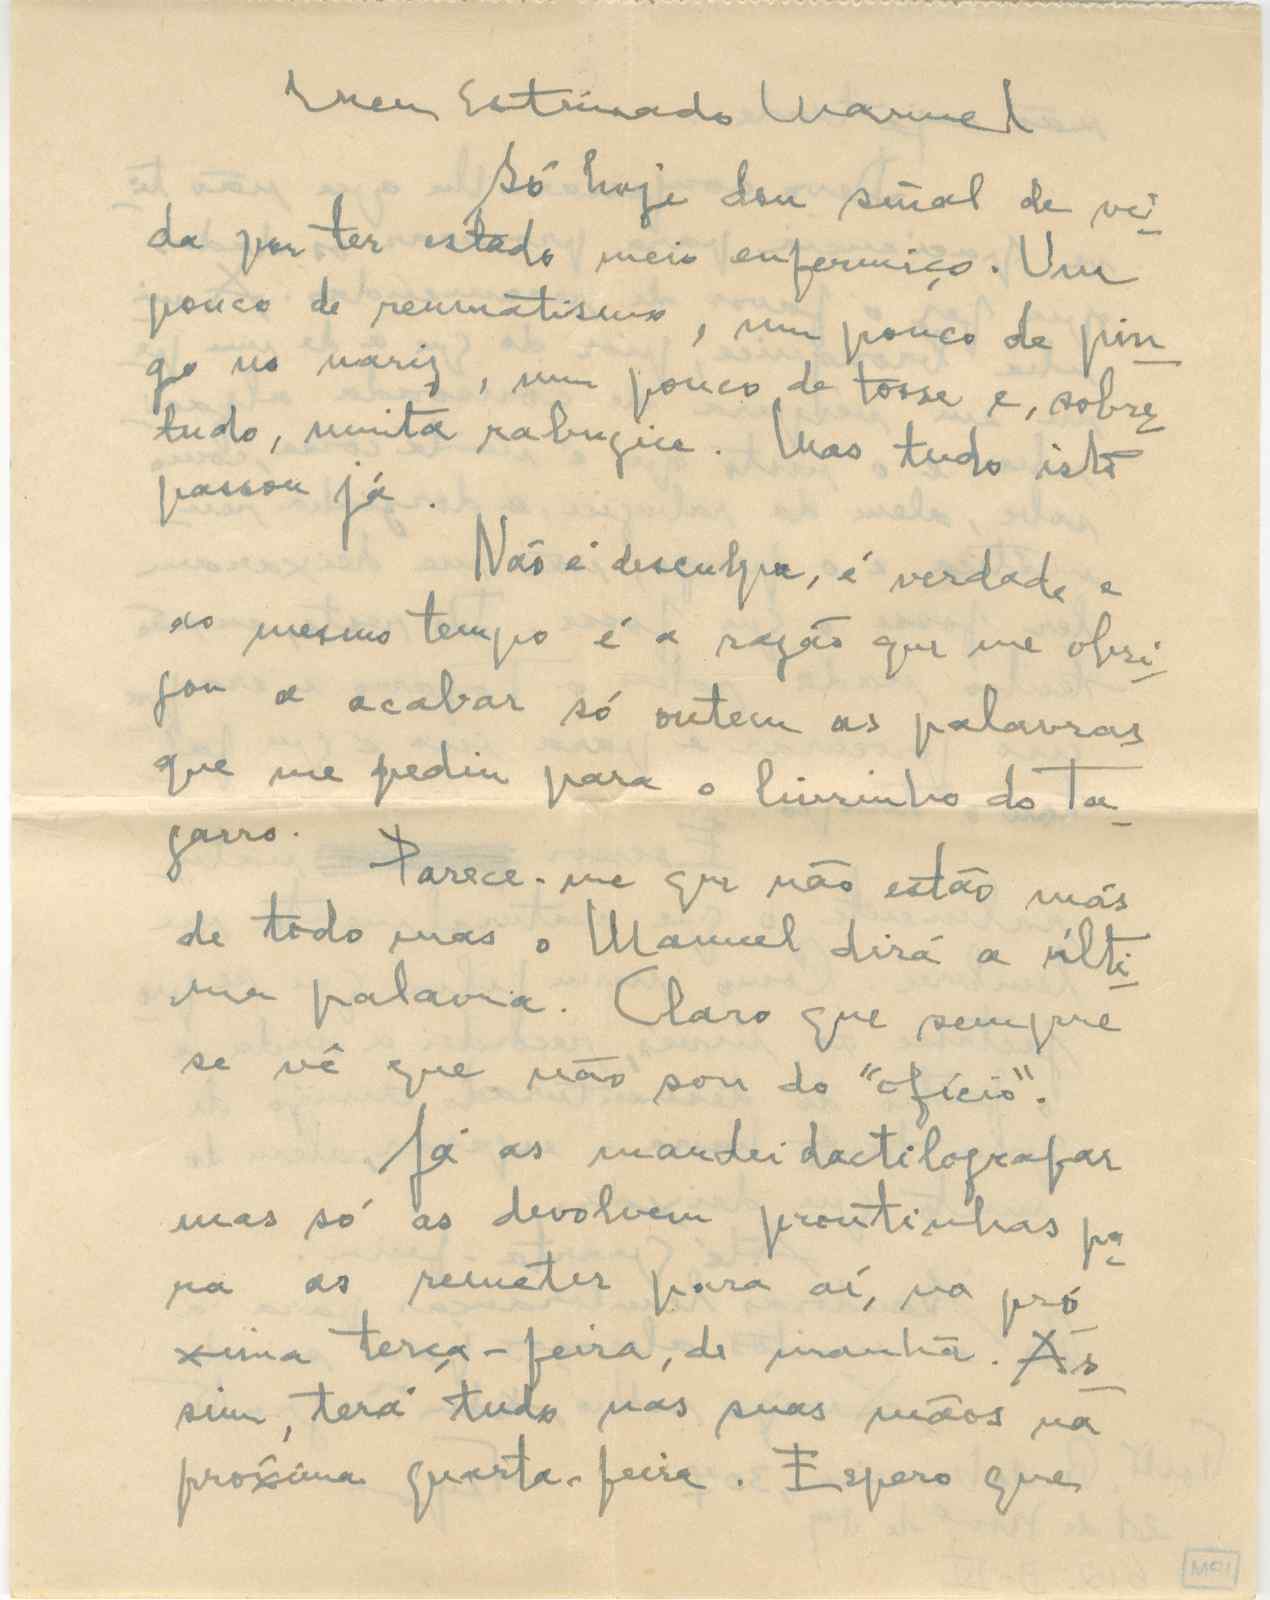 Meu Estimado Manuel
Só hoje dou sinal de vi-
da por ter estado meio enfermiço. Um
pouco de reumatismo, um pouco de pin-
go no nariz, um pouco de tosse e, sobre-
tudo, muita rabugice. Mas tudo isto
passou já.
Não é desculpa, é verdade e
ao mesmo tempo é a razão que me obri-
gou a acabar só ontem as palavras
que me pediu para o livrinho do Ta-
garro.
Parece-me que não estão más
de todo mas o Manuel dirá a últi-
ma palavra. Claro que sempre
se vê que não sou do "ofício".
Já as mandei dactilografar
mas só as devolvem prontinhas pa-
ra as remeter para aí, na pró-
xima terça-feira, de manhã. As-
sim, terá tudo nas suas mãos na
próxima quarta-feira. Espero que